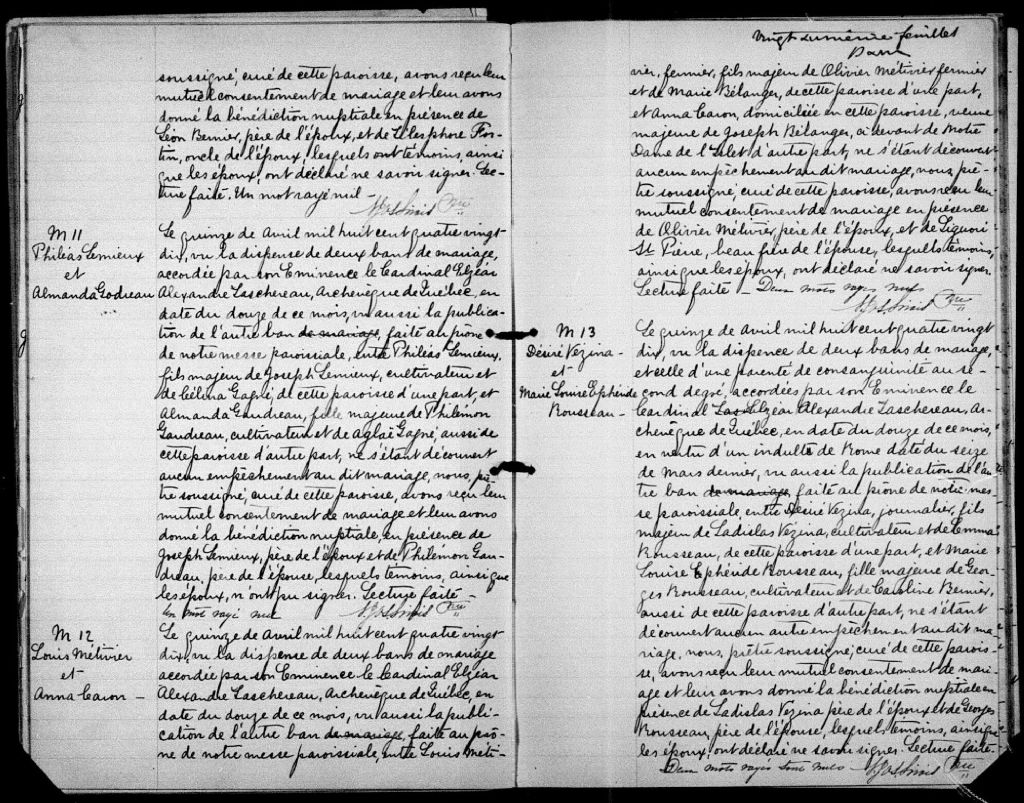 soussigné, curé de cette paroisse, avons reçu leur
mutuel consentement de mariage et leur avons
donné la bénédiction nuptiale en présence de
Léon Bernier, père de l'époux, et de Télesphore For-
tin, oncle de l'époux, lesquels ont témoins, ainsi
que les époux, ont déclaré ne savoir signer. Lec-
ture faite. Un mot rayé nul -
M 11
Philéas Lemieux
et
Almanda Godreau
Le quinze de Avril mil huit cent quatre vingt
dix, vu la dispense de deux bans de mariage,
accordée par son Eminence le Cardinal Elzéar
Alexandre Taschereau, Archevêque de Québec, en
date du douze de ce mois, vu aussi la publica-
tion de l'autre ban de mariage, faite au prône
de notre messe paroissiale, entre Philéas Lemieux,
fils majeur de Joseph Lemieux, cultivateur et
de Célina Gagné, de cette paroisse d'une part, et
Almanda Gaudreau, fille majeure de Philémon
Gaudreau, cultivateur et de Aglaé Gagné, aussi de
cette paroisse d'autre part, ne s'étant découvert
aucun empêchement au dit mariage, nous, prê-
tre soussigné, curé de cette paroisse, avons reçu leur
mutuel consentement de mariage et leur avons
donné la bénédiction nuptiale, en présence de
Joseph Lemieux, père de l'époux et de Philémon Gau-
dreau, père de l'épouse, lesquels témoins, ainsi que
les époux, n'ont pu signer. Lecture faite -
Un mot rayé nul
Curé
M 12
Louis Métivier
et
Anna Caron -
Le quinze de Avril mil huit cent quatre vingt
dix, vu la dispense de deux bans de mariage
accordée par son Eminence le Cardinal Elzéar
Alexandre Taschereau, Archevêque de Québec, en
date du douze de ce mois, vu aussi la publi-
cation de l'autre ban de mariage, faite au prô-
ne de notre messe paroissiale, entre Louis Méti-
Vingt unième feuillet
vier, fermier, fils majeur de Olivier Métivier fermier
et de Marie Bélanger, de cette paroisse d'une part,
et Anna Caron, domiciliée en cette paroisse, veuve
majeure de Joseph Bélanger, ci devant de Notre
Dame de l'Islet d'autre part, ne s'étant découvert
aucun empêchement au dit mariage, nous, prê-
tre soussigné, curé de cette paroisse, avons reçu leur
mutuel consentement de mariage en présence
de Olivier Métivier, père de l'époux, et de Liguori
St. Pierre, beau frère de l'épouse, lesquels témoins,
ainsi que les époux, ont déclaré ne savoir signer.
Lecture faite - Deux mots rayés nuls
Curé
M 13
Désiré Vézina -
et
Marie Louise Ephéride
Rousseau -
Le quinze de Avril mil huit cent quatre vingt
dix, vu la dispence de deux bans de mariage,
et celle d'une parenté de consanguinité au se-
cond degré, accordées par son Eminence le
Cardinal Elzéar Alexandre Taschereau, Ar-
chevêque de Québec, en date du douze de ce mois,
en vertu d'un indult de Rome daté du seize
de Mars dernier, vu aussi la publication de l'au-
tre ban de mariage, faite au prône de notre mes-
se paroissiale, entre Désiré Vézina, journalier, fils
majeur de Ladislas Vézina, cultivateur et de Emma
Rousseau, de cette paroisse d'une part, et Marie
Louise Ephéride Rousseau, fille majeure de Geor-
ges Rousseau, cultivateur et de Caroline Bernier,
aussi de cette paroisse d'autre part, ne s'étant
découvert aucun autre empêchement au dit ma-
riage, nous, prêtre soussigné, curé de cette parois-
se, avons reçu leur mutuel consentement de mari-
age et leur avons donné la bénédiction nuptiale en
présence de Ladislas Vézina père de l'époux et de Georges
Rousseau, père de l'épouse, lesquels témoins, ainsi que
les époux, ont déclaré ne savoir signer. Lecture faite -
Deux mots rayés sont nuls -
Curé